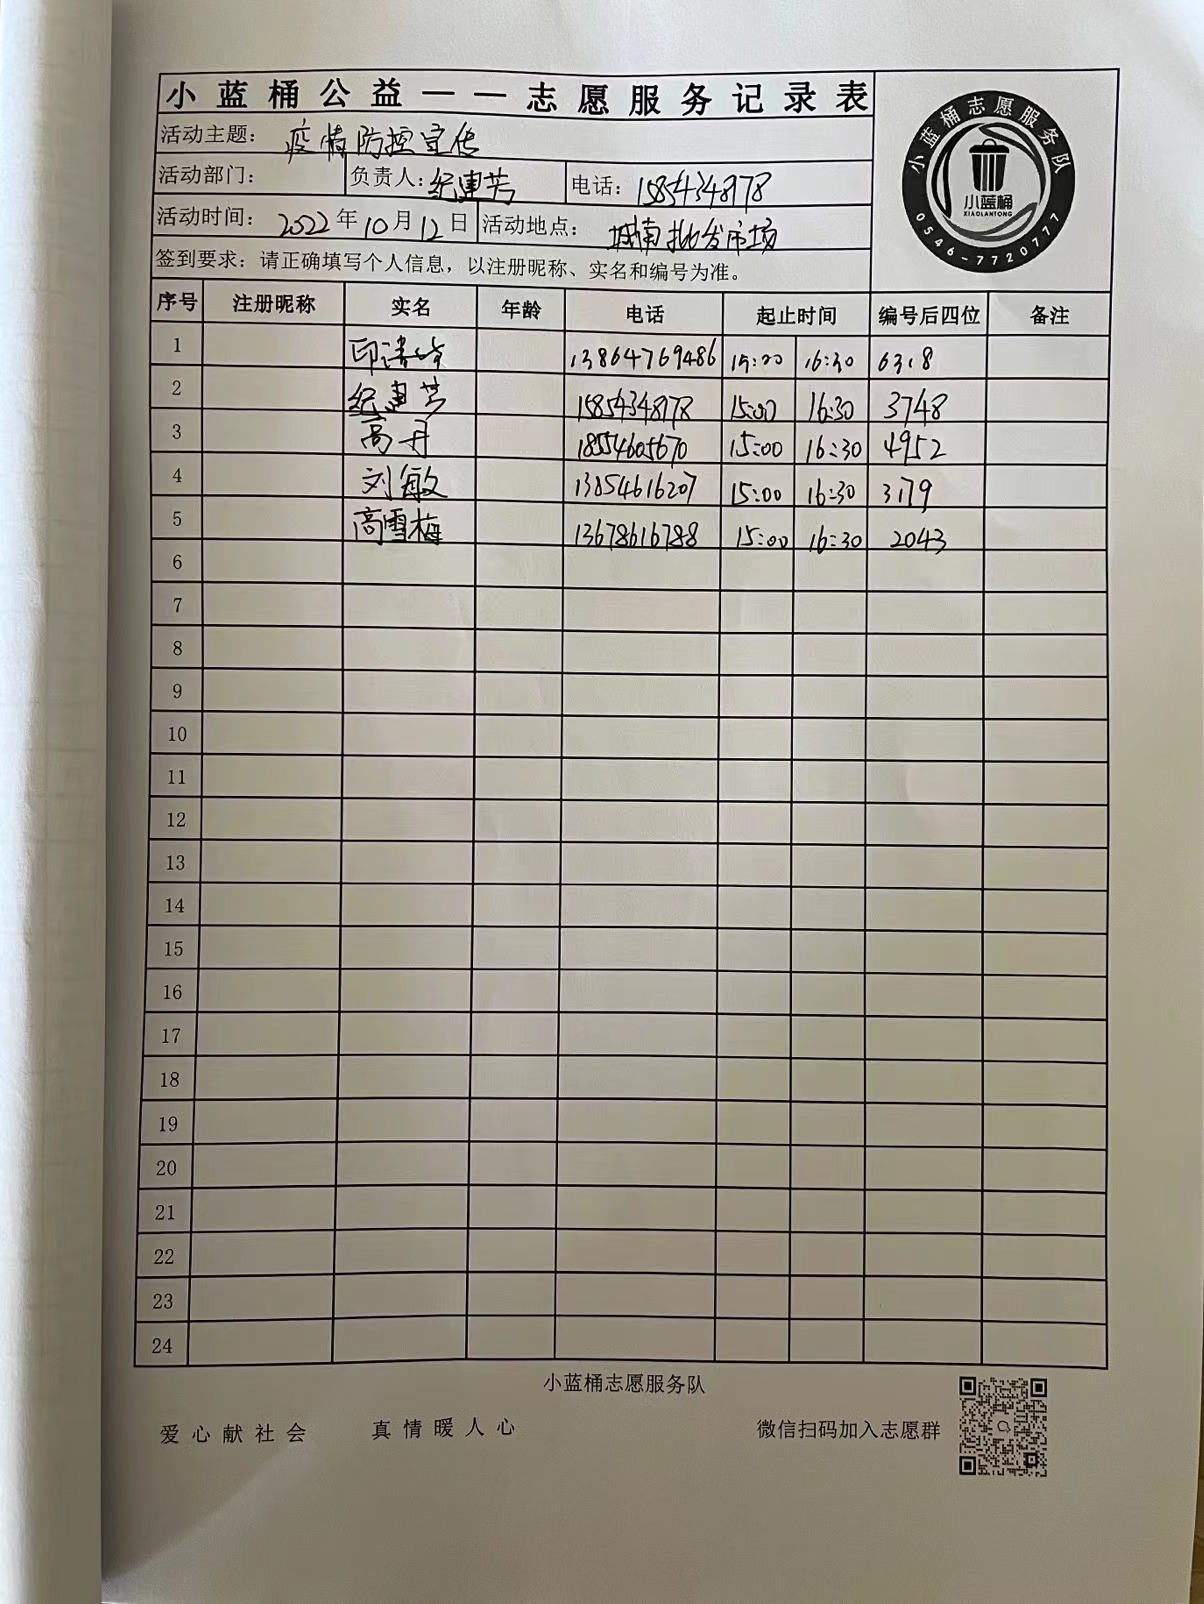 小蓝桶公益——志愿服务记录表
活动主题：疫情防控宣传
活动部门： 负责人：纪惠芳 电话：15854348178
活动时间：2022年10月12日 活动地点：城南批发市场
签到要求：请正确填写个人信息，以注册昵称、实名和编号为准。
小蓝桶志愿服务队
小蓝桶
XIAOLANTONG
0546-7720777
序号 注册昵称 实名 年龄 电话 起止时间 编号后四位 备注
1 13864769486 15:00 16:30 6318
2 纪惠芳 15854348178 15:00 16:30 3748
3 高丹 18554605670 15:00 16:30 4952
4 刘敏 13854616207 15:00 16:30 3179
5 高雪梅 13678616788 15:00 16:30 2043
6
7
8
9
10
11
12
13
14
15
16
17
18
19
20
21
22
23
24
小蓝桶志愿服务队
爱心献社会 真情暖人心 微信扫码加入志愿群